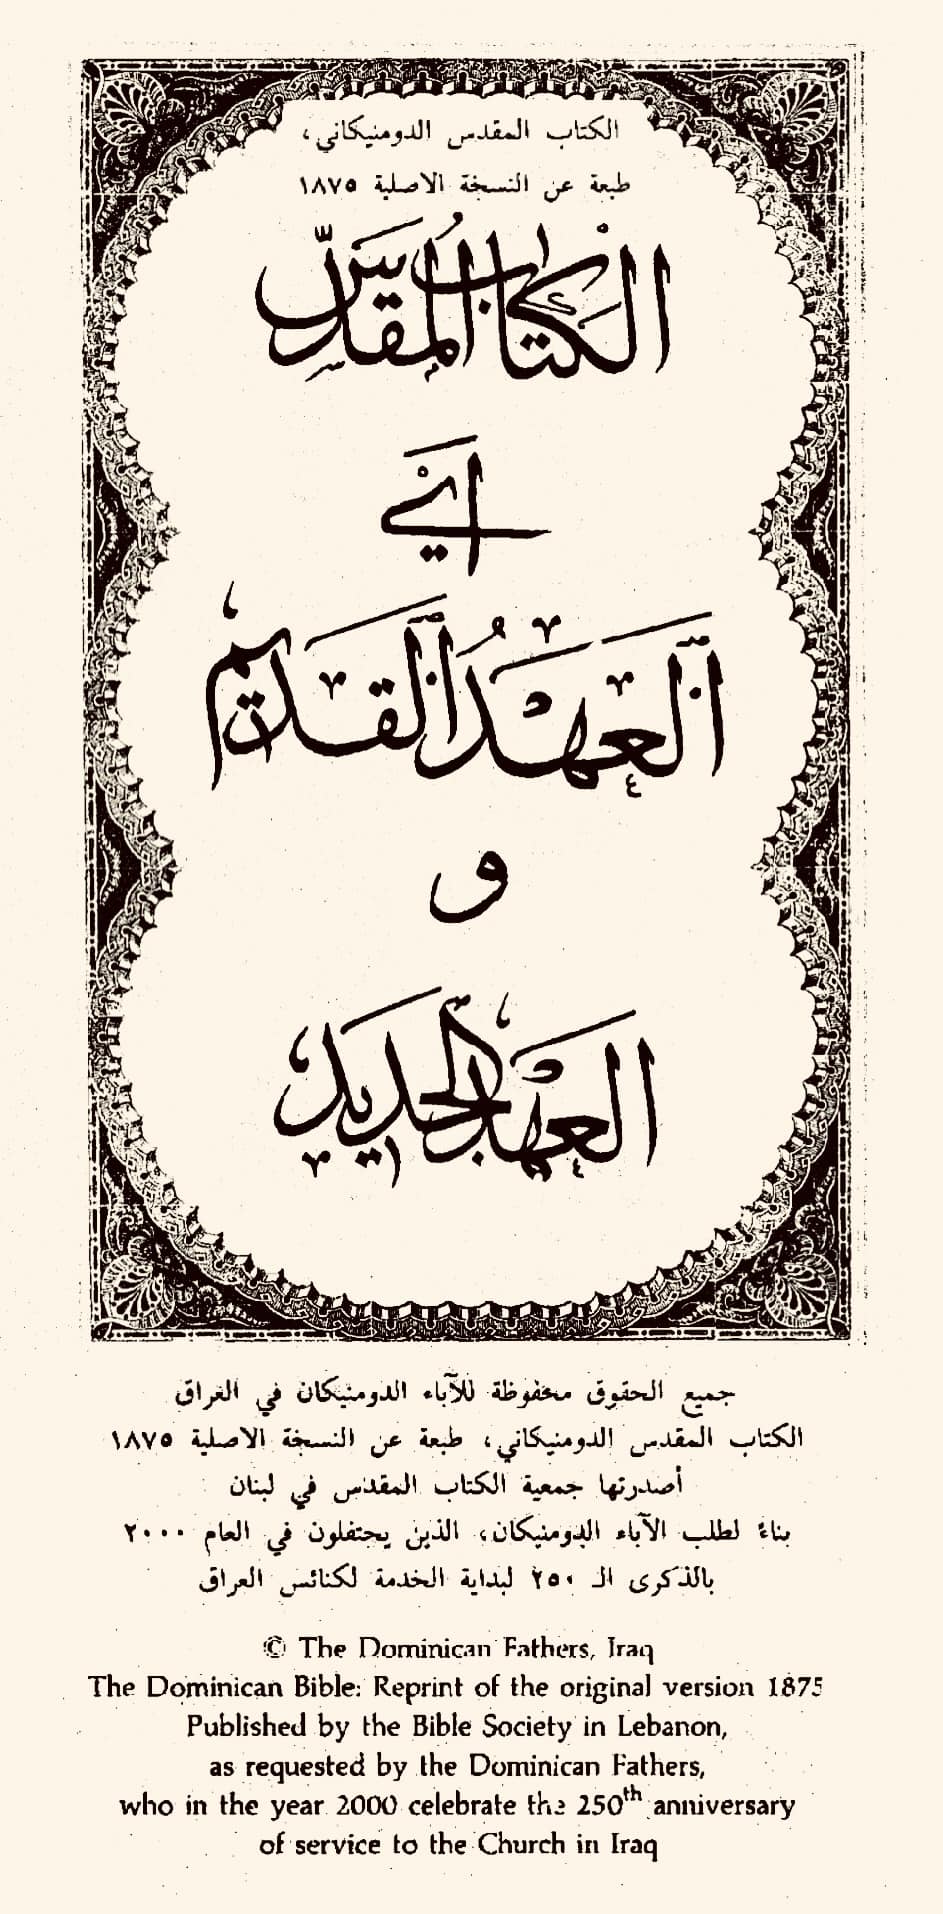 الكتاب المقدس الدومنيكاني،
طبعة عن النسخة الاصلية ١٨٧٥
الكتاب المقدس
اي
العهد القديم
و
العهد الجديد
جميع الحقوق محفوظة للآباء الدومنيكان في العراق
الكتاب المقدس الدومنيكاني، طبعة عن النسخة الاصلية ١٨٧٥
أصدرتها جمعية الكتاب المقدس في لبنان
بناءً لطلب الآباء الدومنيكان، الذين يحتفلون في العام ٢٠٠٠
بالذكرى الـ ٢٥٠ لبداية الخدمة لكنائس العراق
© The Dominican Fathers, Iraq
The Dominican Bible: Reprint of the original version 1875
Published by the Bible Society in Lebanon,
as requested by the Dominican Fathers,
who in the year 2000 celebrate the 250th anniversary
of service to the Church in Iraq